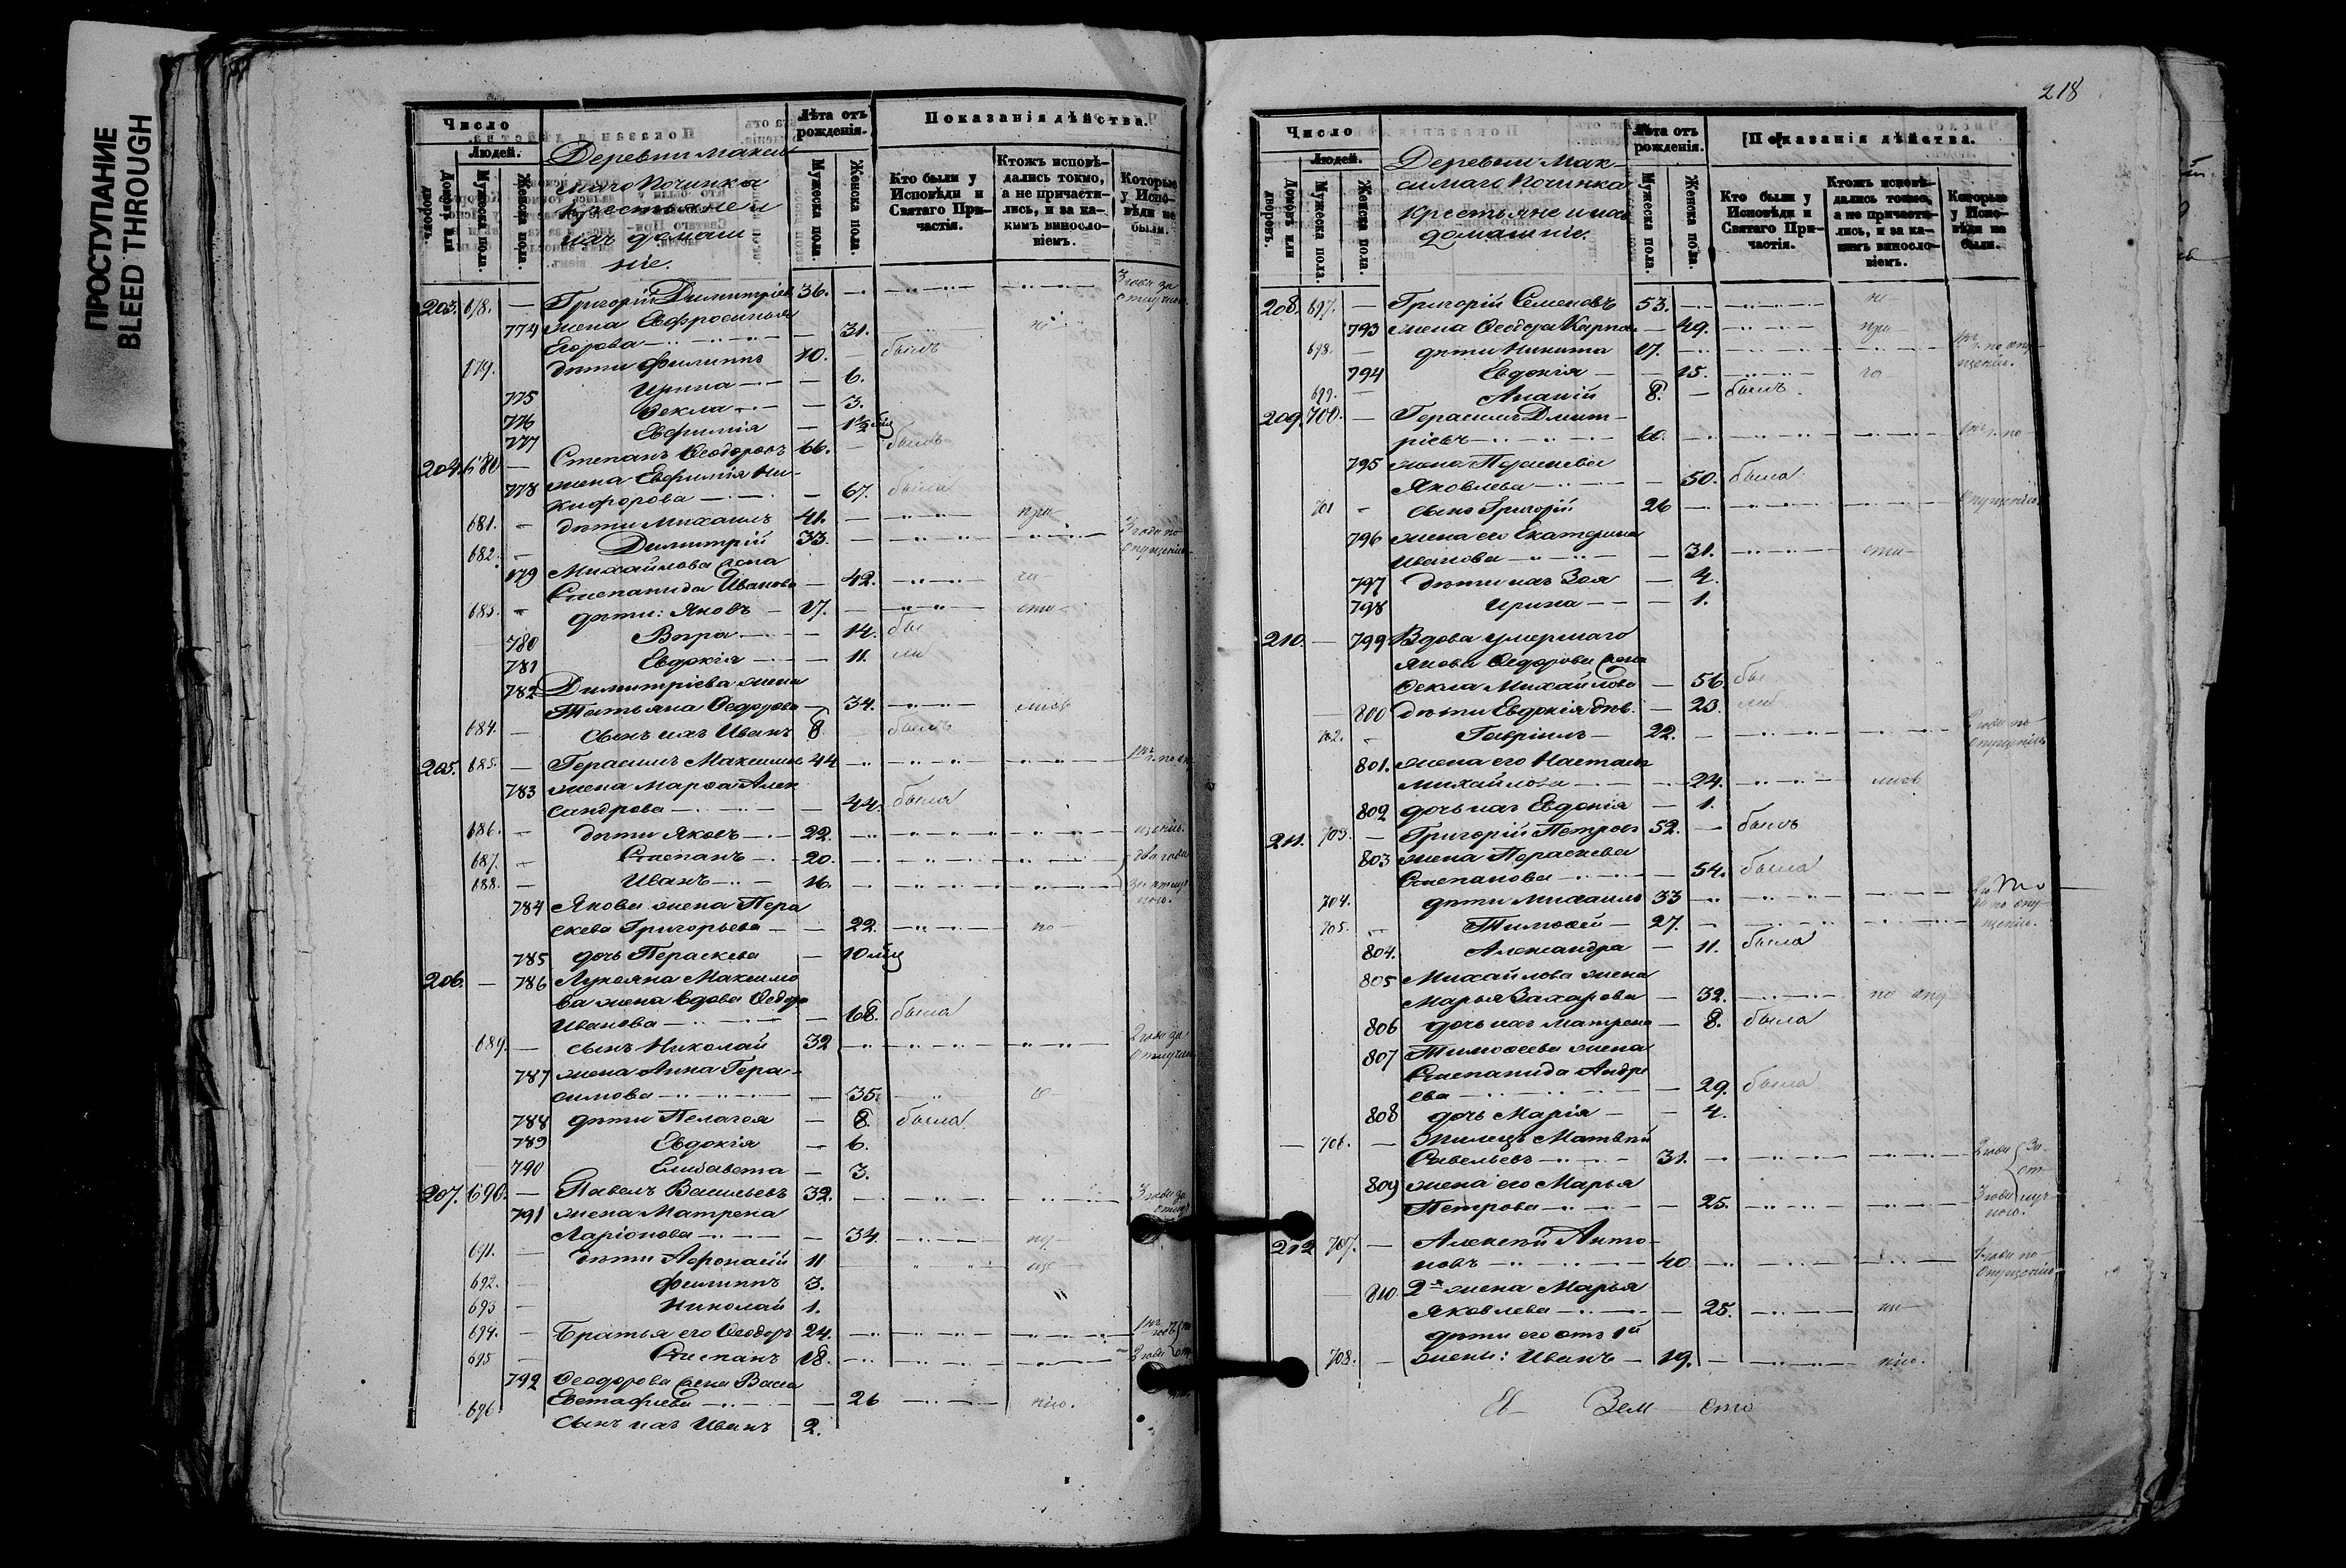 ПРОСТУПАНИЕ
BLEED THROUGH
Число
Людей.
Домовъ или дворовъ.
Мужеска пола.
Женска пола.
Деревни Макси
маго Починка
крестьяне и
ихъ домаш
ніе.
Лѣта отъ рожденія.
Мужеска пола.
Женска пола.
Показанія дѣйства.
Кто были у Исповѣди и Святаго При-частія.
Ктожъ исповѣ-дались токмо, а не причасти-лись, и за ка-кимъ винословіемъ.
Которые у Испо-вѣди не были.
203. 678. — Григорій Димитріев 36. 3 года за отлучкою
774 жена Евфросинья
Егорова — 31.
679. дѣти Филиппъ 10. — былъ
775 Ирина — 6.
776 Ѳекла — 3.
777 Евфимія — 1 1/2
204. 680 — Степанъ Ѳеодоровъ 66. — былъ
778 жена Евфимія Ни-
кифорова — 67. была
681. — дѣти Михаилъ 41. — при
682. — Димитрій 33. — 3 года по опущенію
779 Михайлова жена
Степанида Иванова — 42. ча
683. — дѣти: Яковъ — 17. — сти
780 Вѣра — 14. бы
781 Евдокія — 11. ли
782 Димитріева жена
Татьяна Ѳедорова — 34. лись
684. — сынъ ихъ Иванъ 8. былъ
205. 685. — Герасимъ Максимов 44
783 жена Марѳа Алек
сандрова — 44. была
686. — дѣти Яковъ — 22. щенію
687. — Степанъ — 20. два года
688. — Иванъ — 16. за отлуч
кою.
784 Якова жена Пара
скева Григорьева — 22. по
785 дочь Параскева — 10
206. — 786 Лукояна Максимо
ва жена вдова Ѳедора
Иванова — 68. была
689. — сынъ Николай 32 2 года за отлучкою
787 жена Анна Гера-
симова — 35.
788 дѣти Пелагея — 8. была
789 Евдокія — 6.
790 Елисавета — 3.
207. 690. — Павелъ Васильевъ 32. 3 года за
791 жена Матрена
Ларіонова — 34.
691. — дѣти Аѳонасій 11
692. — Филиппъ 3.
693 — Николай 1.
694. — Братья его Ѳеодоръ 24.
695 — Степанъ 18. 2 года
792 Ѳеодорова жена Васса
Евстафіева — 26 нію.
696 сынъ ихъ Иванъ 2.
218
Число
Людей.
Домовъ или дворовъ.
Мужеска пола.
Женска пола.
Деревни Мак-
симаго Починка
крестьяне и ихъ
домашніе.
Лѣта отъ рожденія.
Мужеска пола.
Женска пола.
Показанія дѣйства.
Кто были у Исповѣди и Святаго При-частія.
Ктожъ исповѣ-дались токмо, а не причасти-лись, и за ка-кимъ винословіемъ.
Которые у Испо-вѣди не были.
208. 697. — Григорій Семеновъ 53. не
793 жена Ѳеодора Карпова — 49. при
698. — дѣти Никита 17. по опу-щенію.
794 Евдокія — 15. ча
699. — Ананій 8. — былъ
209. 700. — Герасимъ Дмит-
ріевъ — 60. по
795 жена Параскева
Яковлева — 50. была
701 — сынъ Григорій 26 опущенію
796 жена его Екатерина
Иванова — 31. сти
797 дѣти ихъ Зоя — 4.
798 Ирина — 1.
210. — 799 Вдова умершаго
Якова Ѳедорова жена
Ѳекла Михайлова — 56. бы
800 дѣти Евдокія дѣв. — 23. ли
702. — Гавріилъ — 22. 2 года по опущенію
801. жена его Настасья
Михайлова — 24. лись
802 дочь ихъ Евдокія — 1.
211. 703. — Григорій Петровъ 52. — былъ
803 жена Параскева
Степанова — 54. была
704. дѣти Михаилъ 33
705. — Тимоѳей — 27. щенію.
804. Александра — 11. была
805 Михайлова жена
Марья Захарова — 32. по опу
806 дочь ихъ Матрена — 8. была
807 Тимоѳеева жена
Степанида Андре
ева — 29. была
808 дочь Марія — 4.
— 706. — Жилецъ Матвѣй
Савельевъ — 31. 2 года за
809 жена его Марья от
Петрова — 25. 3 года луч
кою.
212 707. — Алексѣй Анто-
новъ — 40 года по опущенію
810. 2я жена Марья
Яковлева — 25.
дѣти его отъ 1й
708. — жены: Иванъ — 19. нію.
Зем — сто